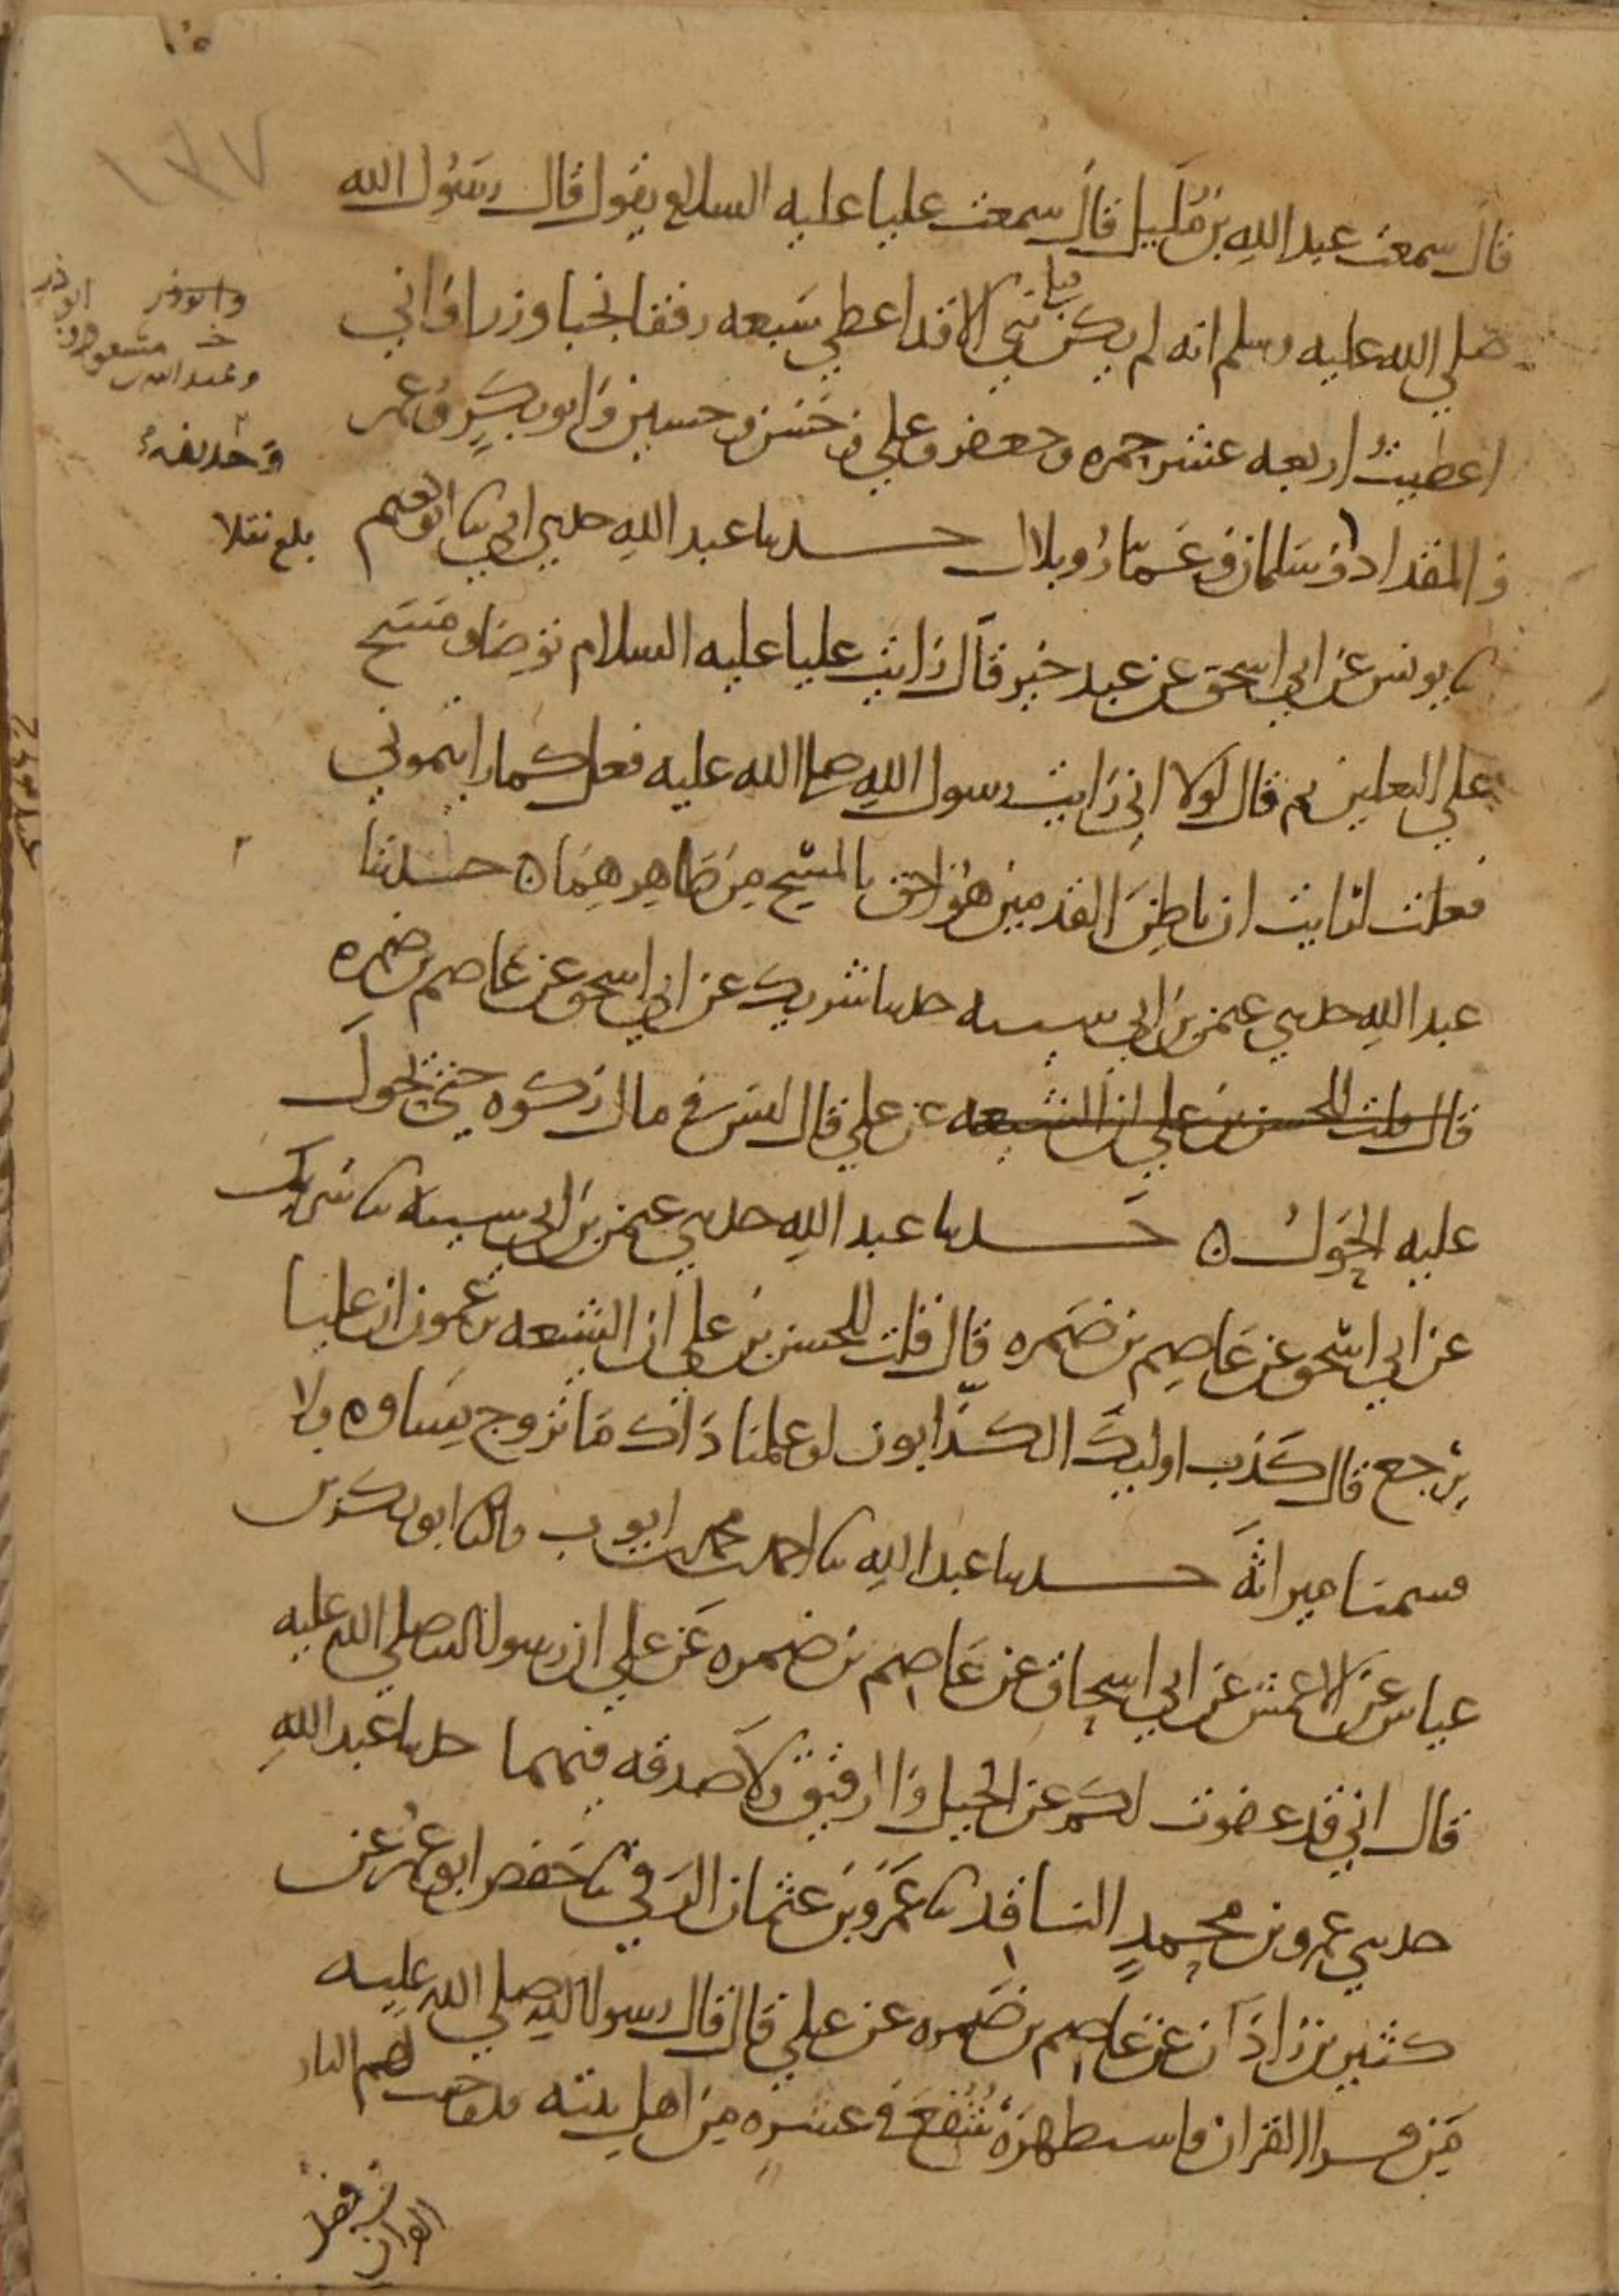 ١٣٧
قال سمعت عبد الله بن مليل قال سمعت عليا عليه السلام يقول قال رسول الله
صلي الله عليه وسلم انه لم يكن قبلي نبي الا قد اعطي سبعه رفقا نجبا وزرا واني
اعطيت اربعه عشر حمزه وجعفر وعلي وحسن وحسين وابو بكر وعمر
والمقداد وسلمان وعمار وبلال حدثنا عبد الله حدثني ابي ثنا ابو نعيم
ثنا يونس عن ابي اسحق عن عبد خير قال رايت عليا عليه السلام توضا ومسح
علي النعلين ثم قال لولا اني رايت رسول الله صلى الله عليه فعل كما رايتموني
فعلت لرايت ان باطن القدمين هو احق بالمسح من ظاهرهما ه حدثنا
عبد الله حدثني عثمن بن ابي شيبه حدثنا شريك عن ابي اسحق عن عاصم بن ضمره
قال قلت للحسن بن علي ان الشيعه عن علي قال ليس في مال زكوه حتى يحول
عليه الحول ه حدثنا عبد الله حدثني عثمن بن ابي شيبه ثنا شريك
عن ابي اسحق عن عاصم بن ضمره قال قلت للحسن بن علي ان الشيعه يزعمون ان عليا
يرجع قال كذب اوليك الكذابون لو علمنا ذاك ما تزوج نساوه ولا
قسمنا ميراثه حدثنا عبد الله ثنا احمد بن محمد بن ايوب ثنا ابو بكر بن
عياش عن الاعمش عن ابي اسحاق عن عاصم بن ضمره عن علي ان رسول الله صلي الله عليه
قال اني قد عفوت لكم عن الخيل والرقيق ولا صدقه فيهما حدثنا عبد الله
حدثني عمرو بن محمد الناقد ثنا عمرو بن عثمان الرقي ثنا حفص ابو عمر عن
كثير بن زاذان عن عاصم بن ضمره عن علي قال قال رسول الله صلي الله عليه
من قرا القران فاستظهره شفع في عشره من اهل بيته قد وجبت لهم النار
وابوذر
وعبد الله بن مسعود
وحذيفه
ابوذر
بلغ نقلا
في فضل
القران